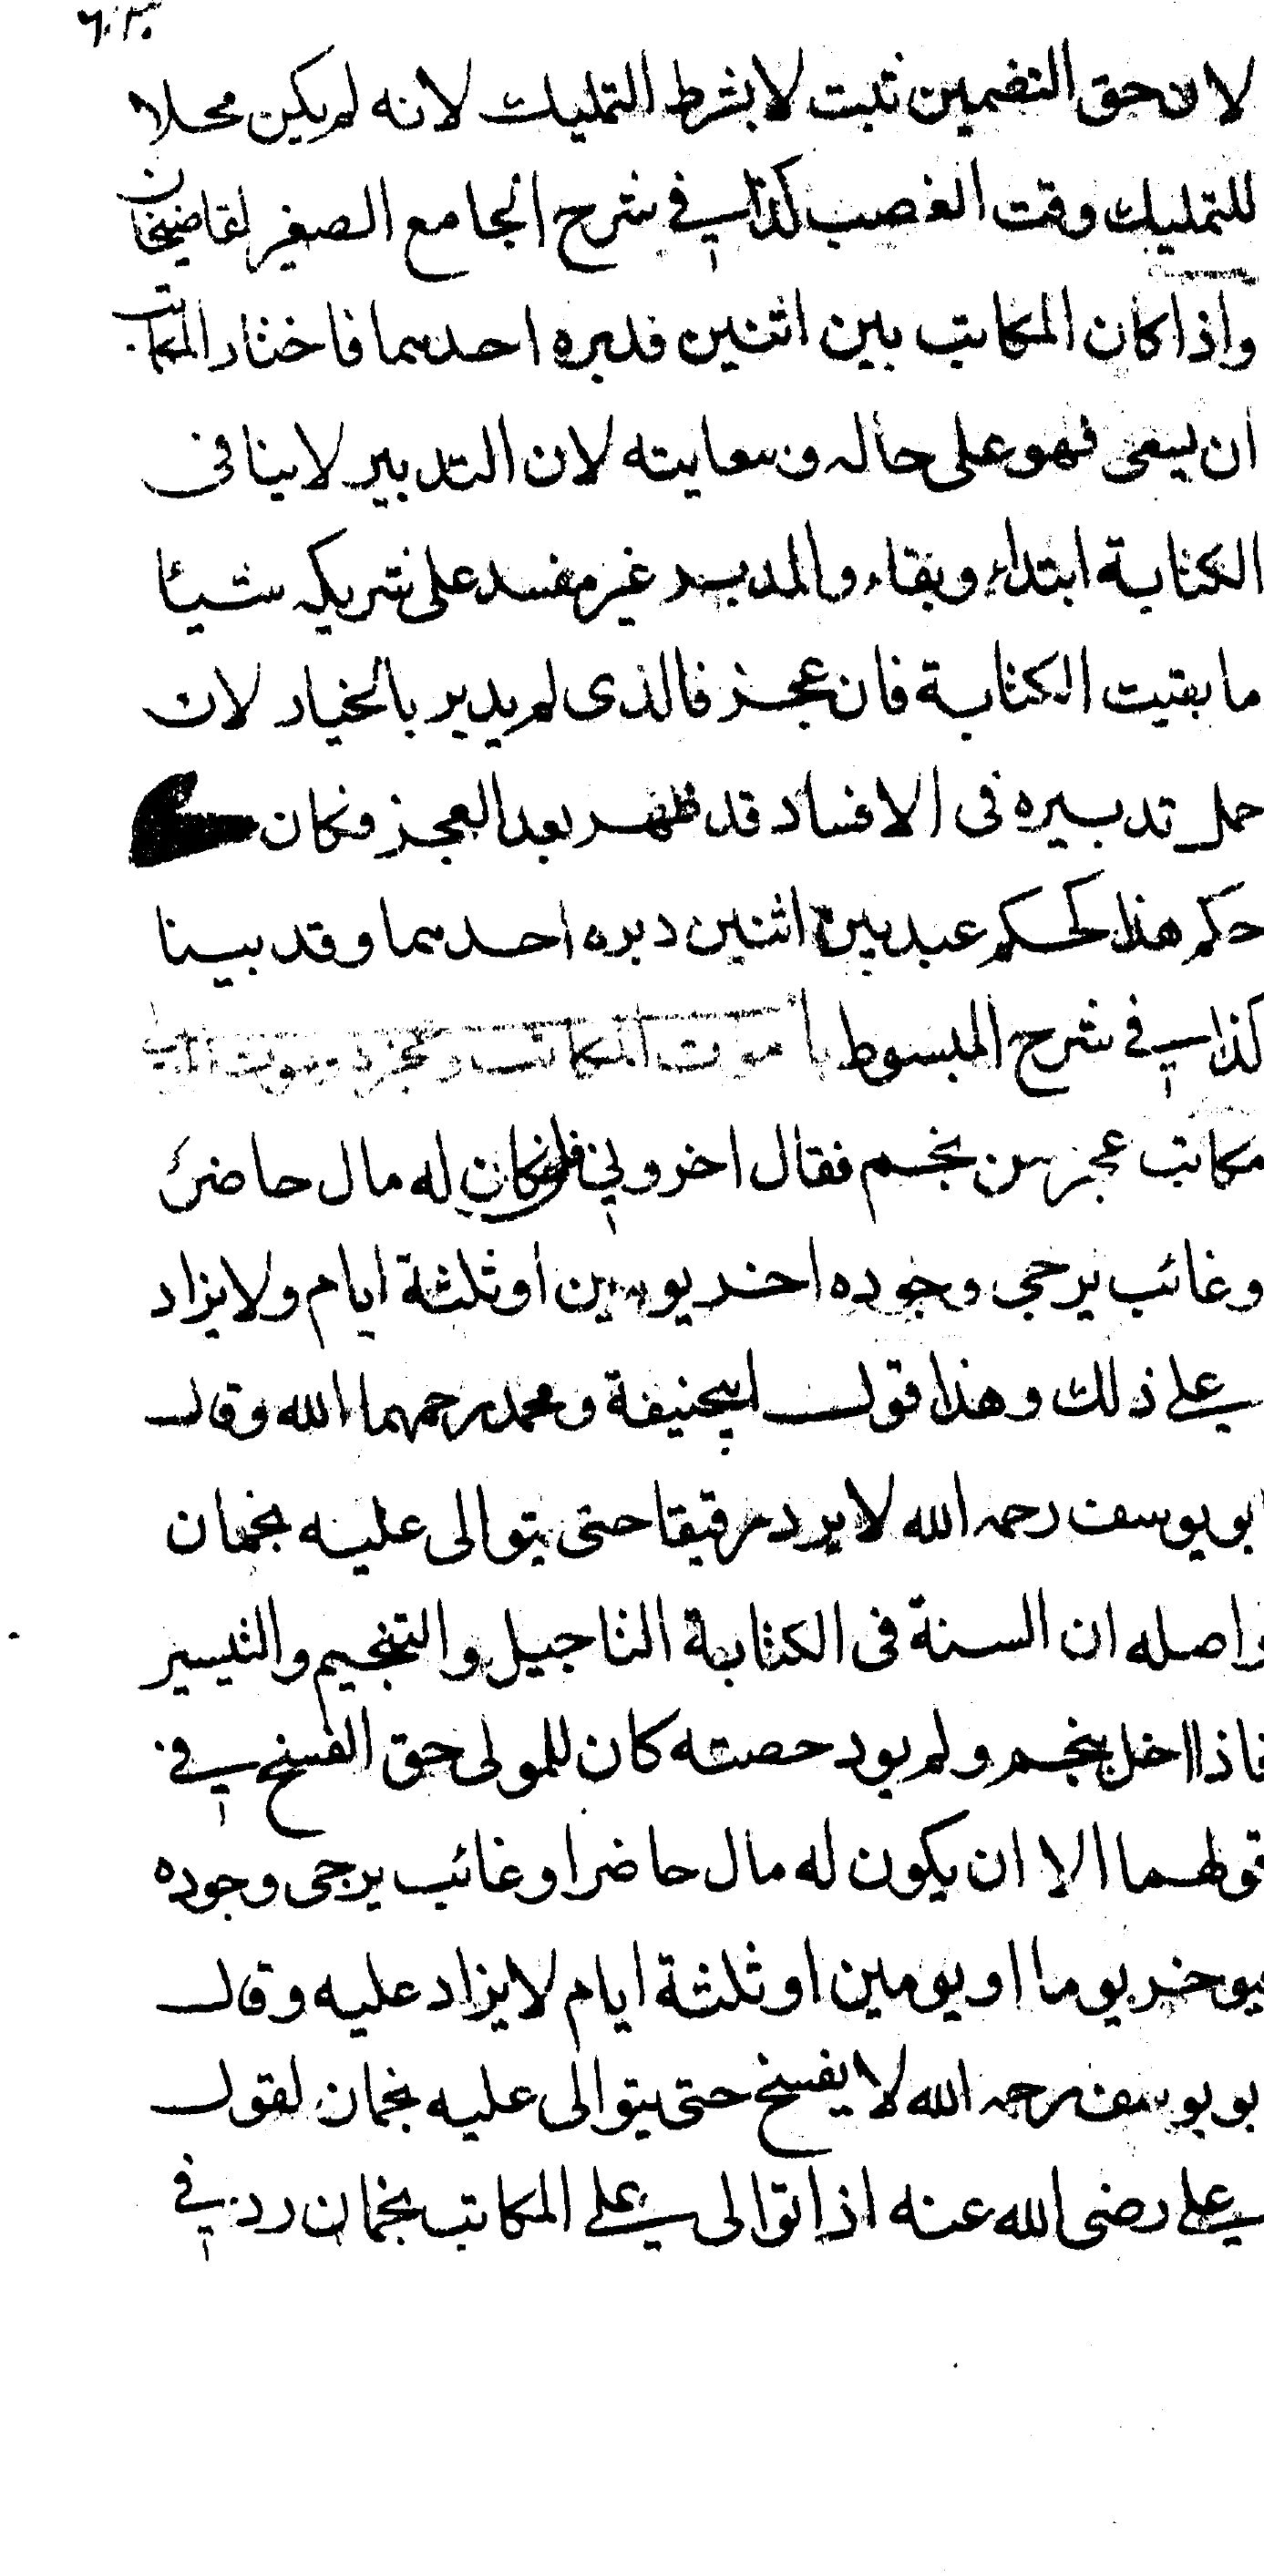 ٦٠٣٠
لان حق التضمين ثبت لا بشرط التمليك لانه لم يكن محلا
للتمليك وقت الغصب كذا في شرح الجامع الصغير لقاضيخان
واذا كان المكاتب بين اثنين فدبره احدهما فاختار المكاتب
ان يسعى فهو على حاله وسعايته لان التدبير لا ينافى
الكتابة ابتداء وبقاء والمدبر غير مفسد على شريكه شيئا
ما بقيت الكتابة فان عجز فالذى لم يدبر بالخيار لان
حمل تدبيره فى الافساد قد ظهر بعد العجز فكان
حكم هذا كحكم عبد بين اثنين دبره احدهما وقد بينا
كذا في شرح المبسوط با موت المكاتب وعجزه وموت
مكاتب عجز عن نجم فقال اخرونى فان كان له مال حاضر
وغائب يرجى وجوده اخر يومين او ثلثة ايام ولا يزاد
على ذلك وهذا قول ابيحنيفة ومحمد رحمهما الله وقال
ابو يوسف رحمه الله لا يرد رقيقا حتى يتوالى عليه نجمان
واصله ان السنة فى الكتابة التاجيل والتنجيم والتيسير
فاذا اخل بنجم ولم يود حصته كان للمولى حق الفسخ في
قولهما الا ان يكون له مال حاضر او غائب يرجى وجوده
فيوخر يوما او يومين او ثلثة ايام لا يزاد عليه وقال
بو يوسف رحمه الله لا يفسخ حتى يتوالى عليه نجمان لقول
على رضى الله عنه اذا توالى على المكاتب نجمان رد في